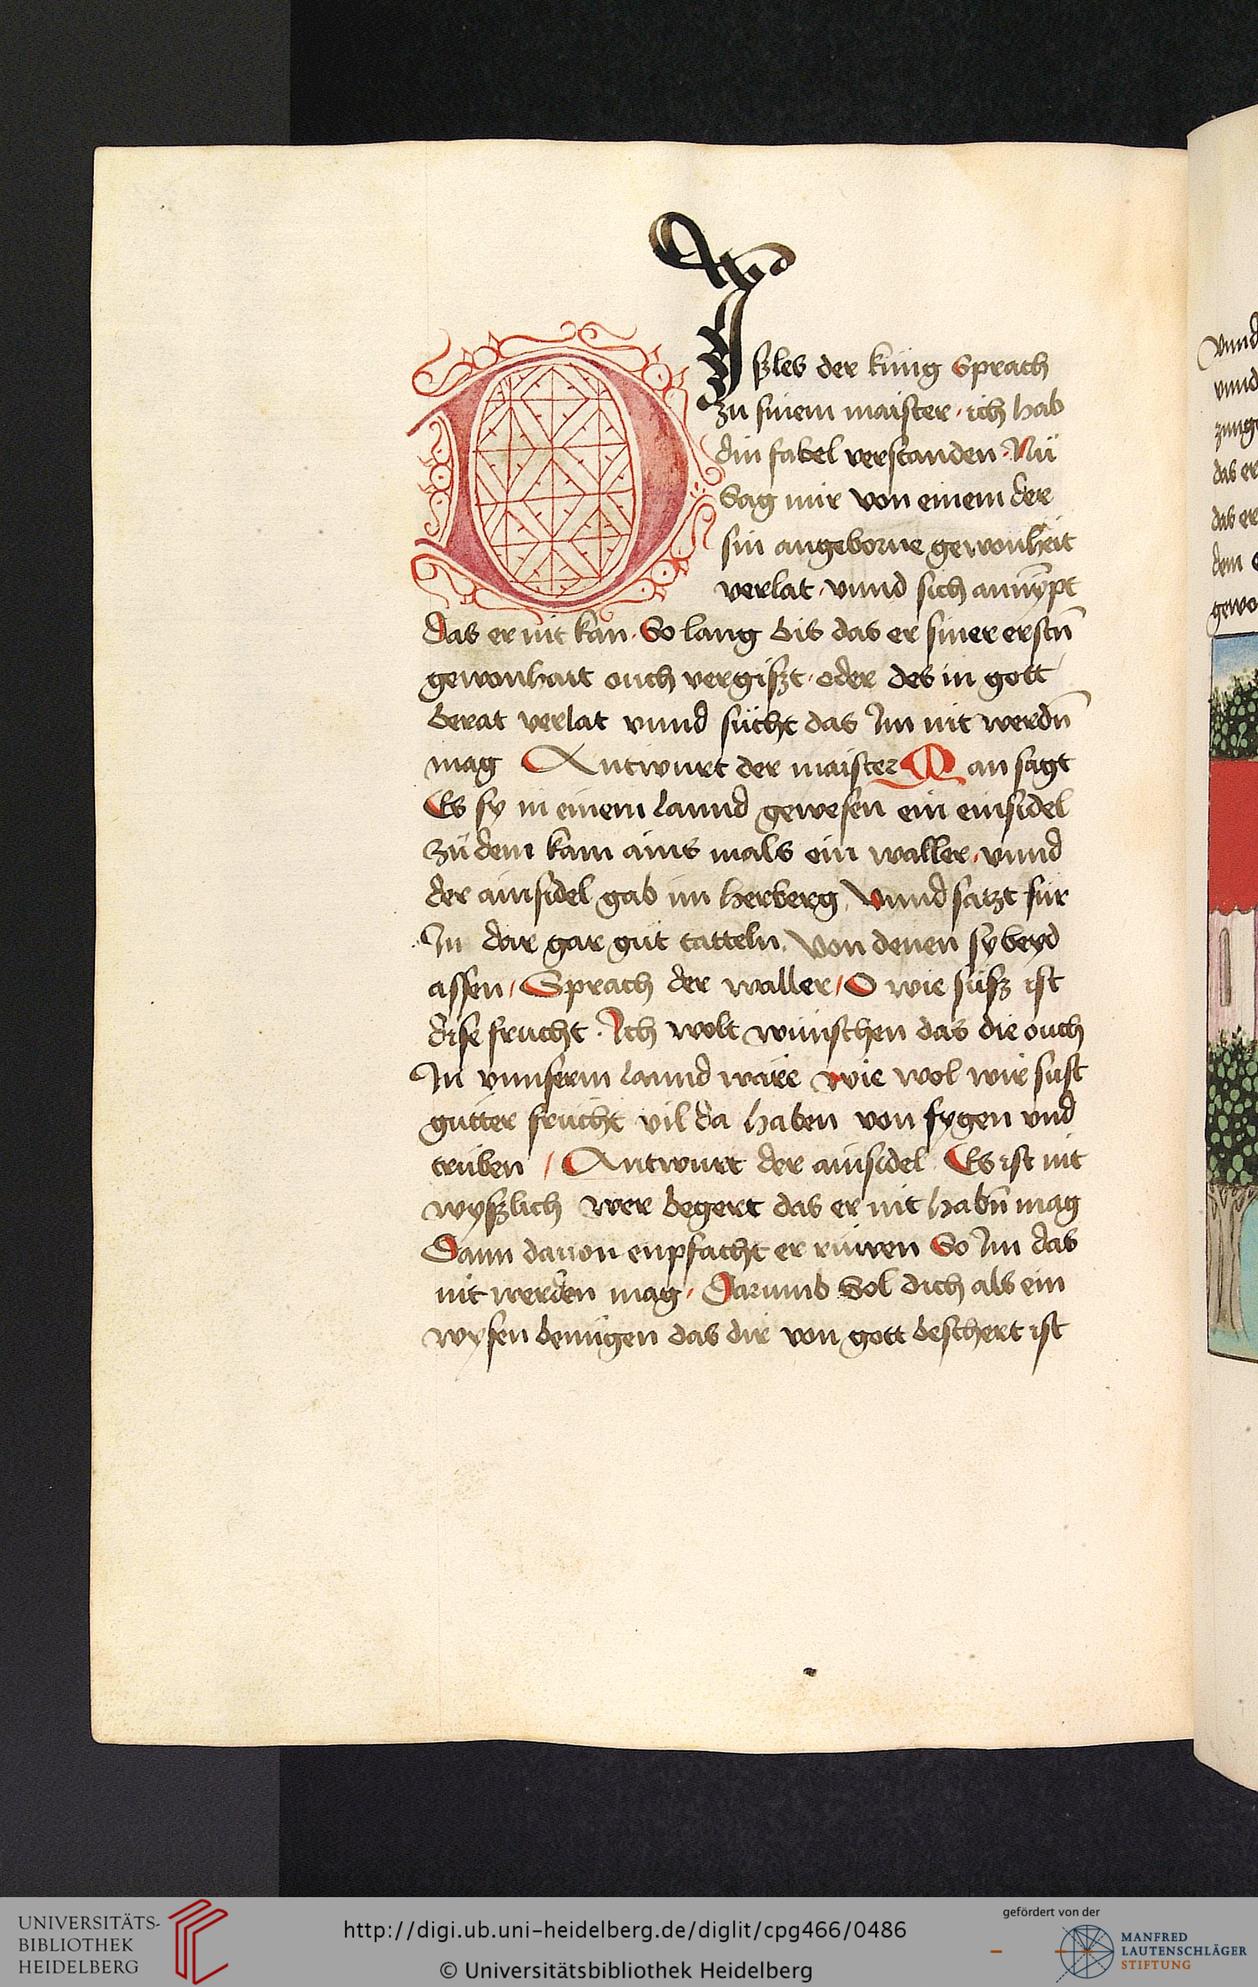 DIßles der kúnig Sprach
zu sinem maister · ich hab
din fabel verstanden · Nů
Sag mir von einem der
sin angeborne gewonheit
verlat · vnnd sich annÿpt
Das er nit kan · So lang bis das er siner erstn̄
gewonhait ouch vergißt · oder des in gott
berat verlat vnnd sůcht das Im nit werdn̄
mag Antwurt der maister Man sagt
Es sy in einem lannd gewesen ein einsidel
zů dem kam ains mals ein waller · vnnd
der ainsidel gab im herberg Vnnd satzt für
In dar gar gůt tatteln. Von denen sy beyd
assen / Sprach der waller / O wie sůß ist
dise frucht · Ich wolt wúnschen das die ouch
In vnnserm lannd wäre wie wol wir sust
gůtter frúcht vil da haben von fygen vnd
truben / Antwurt der ainsidel Es ist nit
wyßlich wer begert das er nit habn̄ mag
Dann dauon enpfacht er rúwen So Im das
nit werden mag / Darumb Sol dich als ein
wysen benúgen das dir von gott beschert ist
vnnd
vnnd
das er
das er
dem
gewo
UNIVERSITÄTS-
BIBLIOTHEK
HEIDELBERG
http://digi.ub.uni-heidelberg.de/diglit/cpg466/0486
© Universitätsbibliothek Heidelberg
gefördert von der
MANFRED
LAUTENSCHLÄGER
STIFTUNG